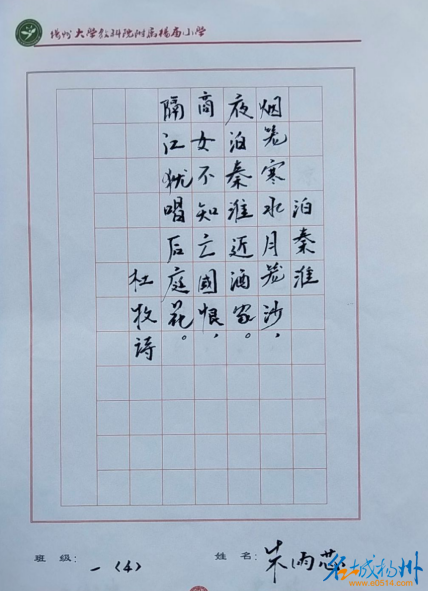 扬州大学教科院附属杨庙小学
泊秦淮
烟笼寒水月笼沙，
夜泊秦淮近酒家。
商女不知亡國恨，
隔江犹唱后庭花。
杜牧诗
班 级：一（4）
姓 名：朱雨蕊
名城扬州
www.e0514.com